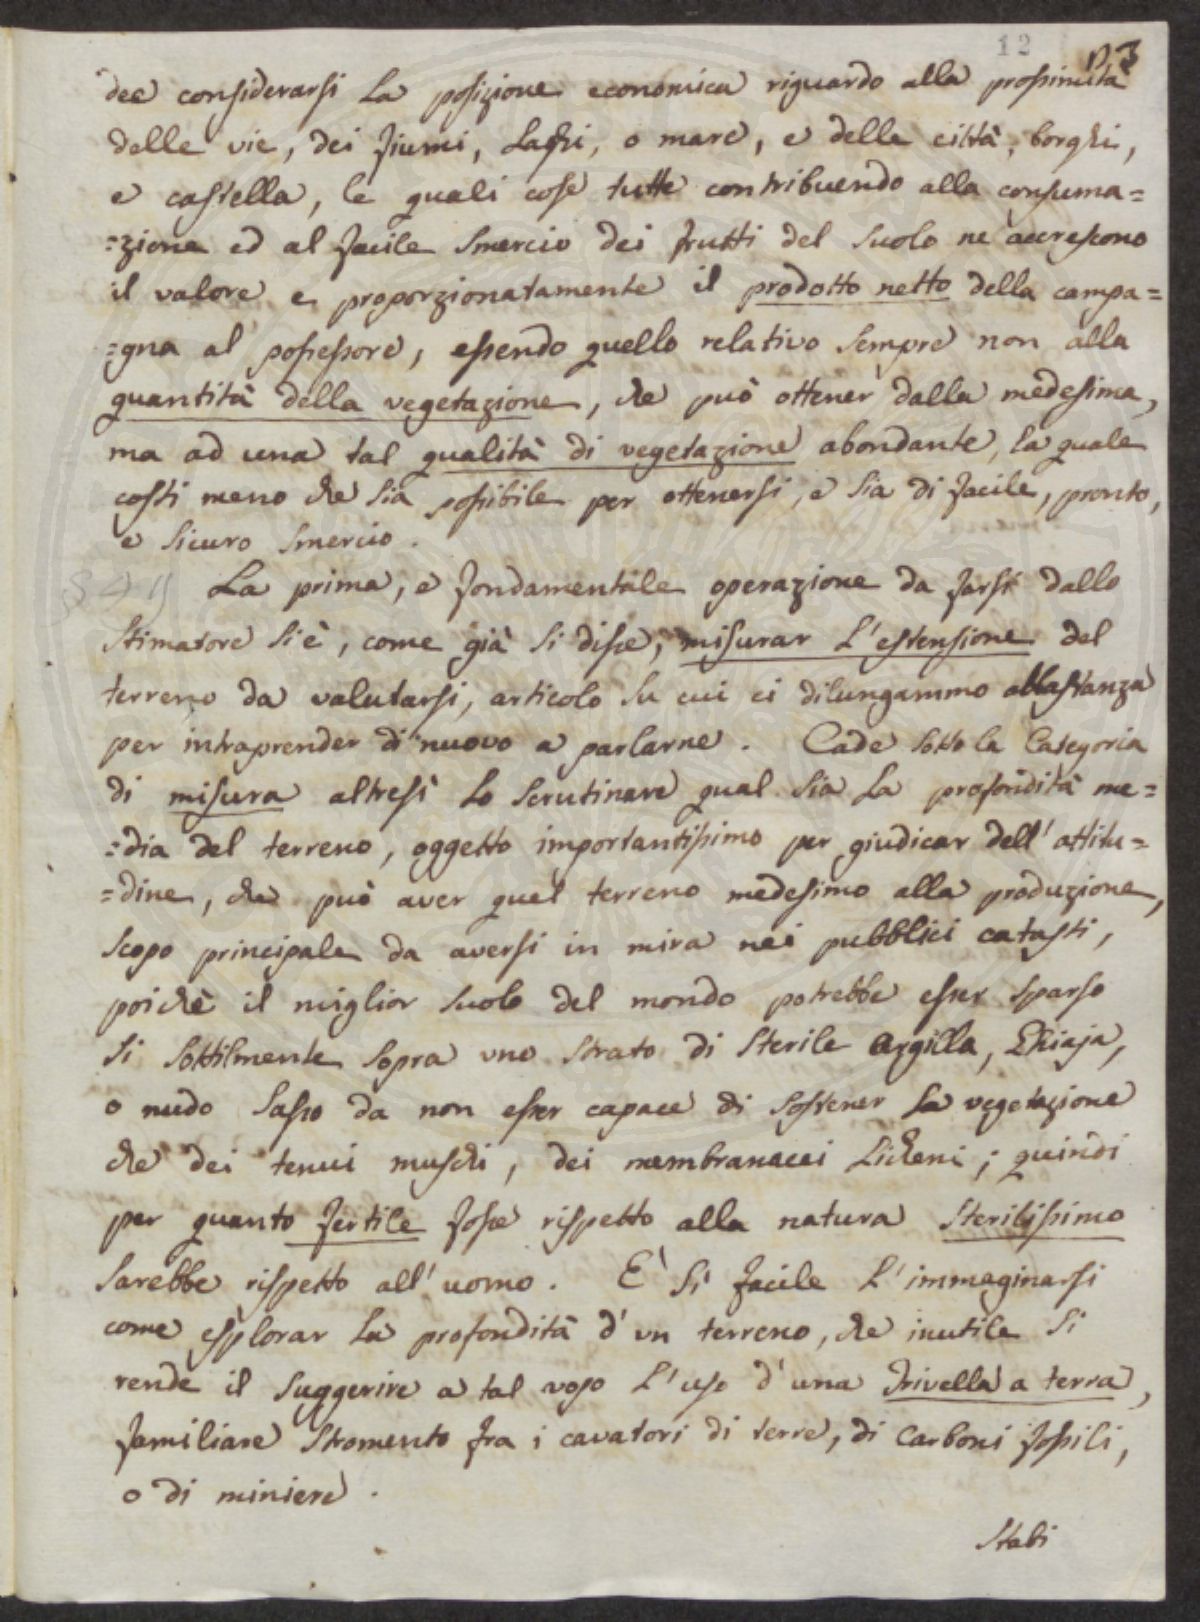 12 23
dee considerarsi La posizione economica riguardo alla prossimità
delle vie, dei fiumi, Laghi, o mare, e delle città, borghi,
e castella, le quali cose tutte contribuendo alla consuma=
=zione ed al facile smercio dei frutti del suolo ne accrescono
il valore e proporzionatamente il prodotto netto della campa=
=gna al possessore, essendo quello relativo sempre non alla
quantità della vegetazione, che può ottener dalla medesima,
ma ad una tal qualità di vegetazione abondante, la quale
costi meno che sia possibile per ottenersi, e sia di facile, pronto,
e sicuro smercio.
§ 4 La prima, e fondamentale operazione da farsi dallo
Stimatore si è, come già si disse, misurar L'estensione del
terreno da valutarsi, articolo su cui ci dilungammo abbastanza
per intraprender di nuovo a parlarne. Cade sotto la Categoria
di misura altresì Lo scrutinare qual sia La profondità me=
=dia del terreno, oggetto importantissimo per giudicar dell'attitu=
=dine, che può aver quel terreno medesimo alla produzione,
scopo principale da aversi in mira nei pubblici catasti,
poichè il miglior suolo del mondo potrebbe esser sparso
sì sottilmente sopra uno strato di sterile argilla, Ghiaja,
o nudo sasso da non esser capace di sostener La vegetazione
che dei tenui muschi, dei membranacei Licheni; quindi
per quanto fertile fosse rispetto alla natura sterilissimo
sarebbe rispetto all'uomo. E' sì facile L'immaginarsi
come esplorar La profondità d'un terreno, che inutile si
rende il suggerire a tal uopo L'uso d'una trivella a terra,
familiare stromento fra i cavatori di terre, di Carboni fossili,
o di miniere.
Stabi